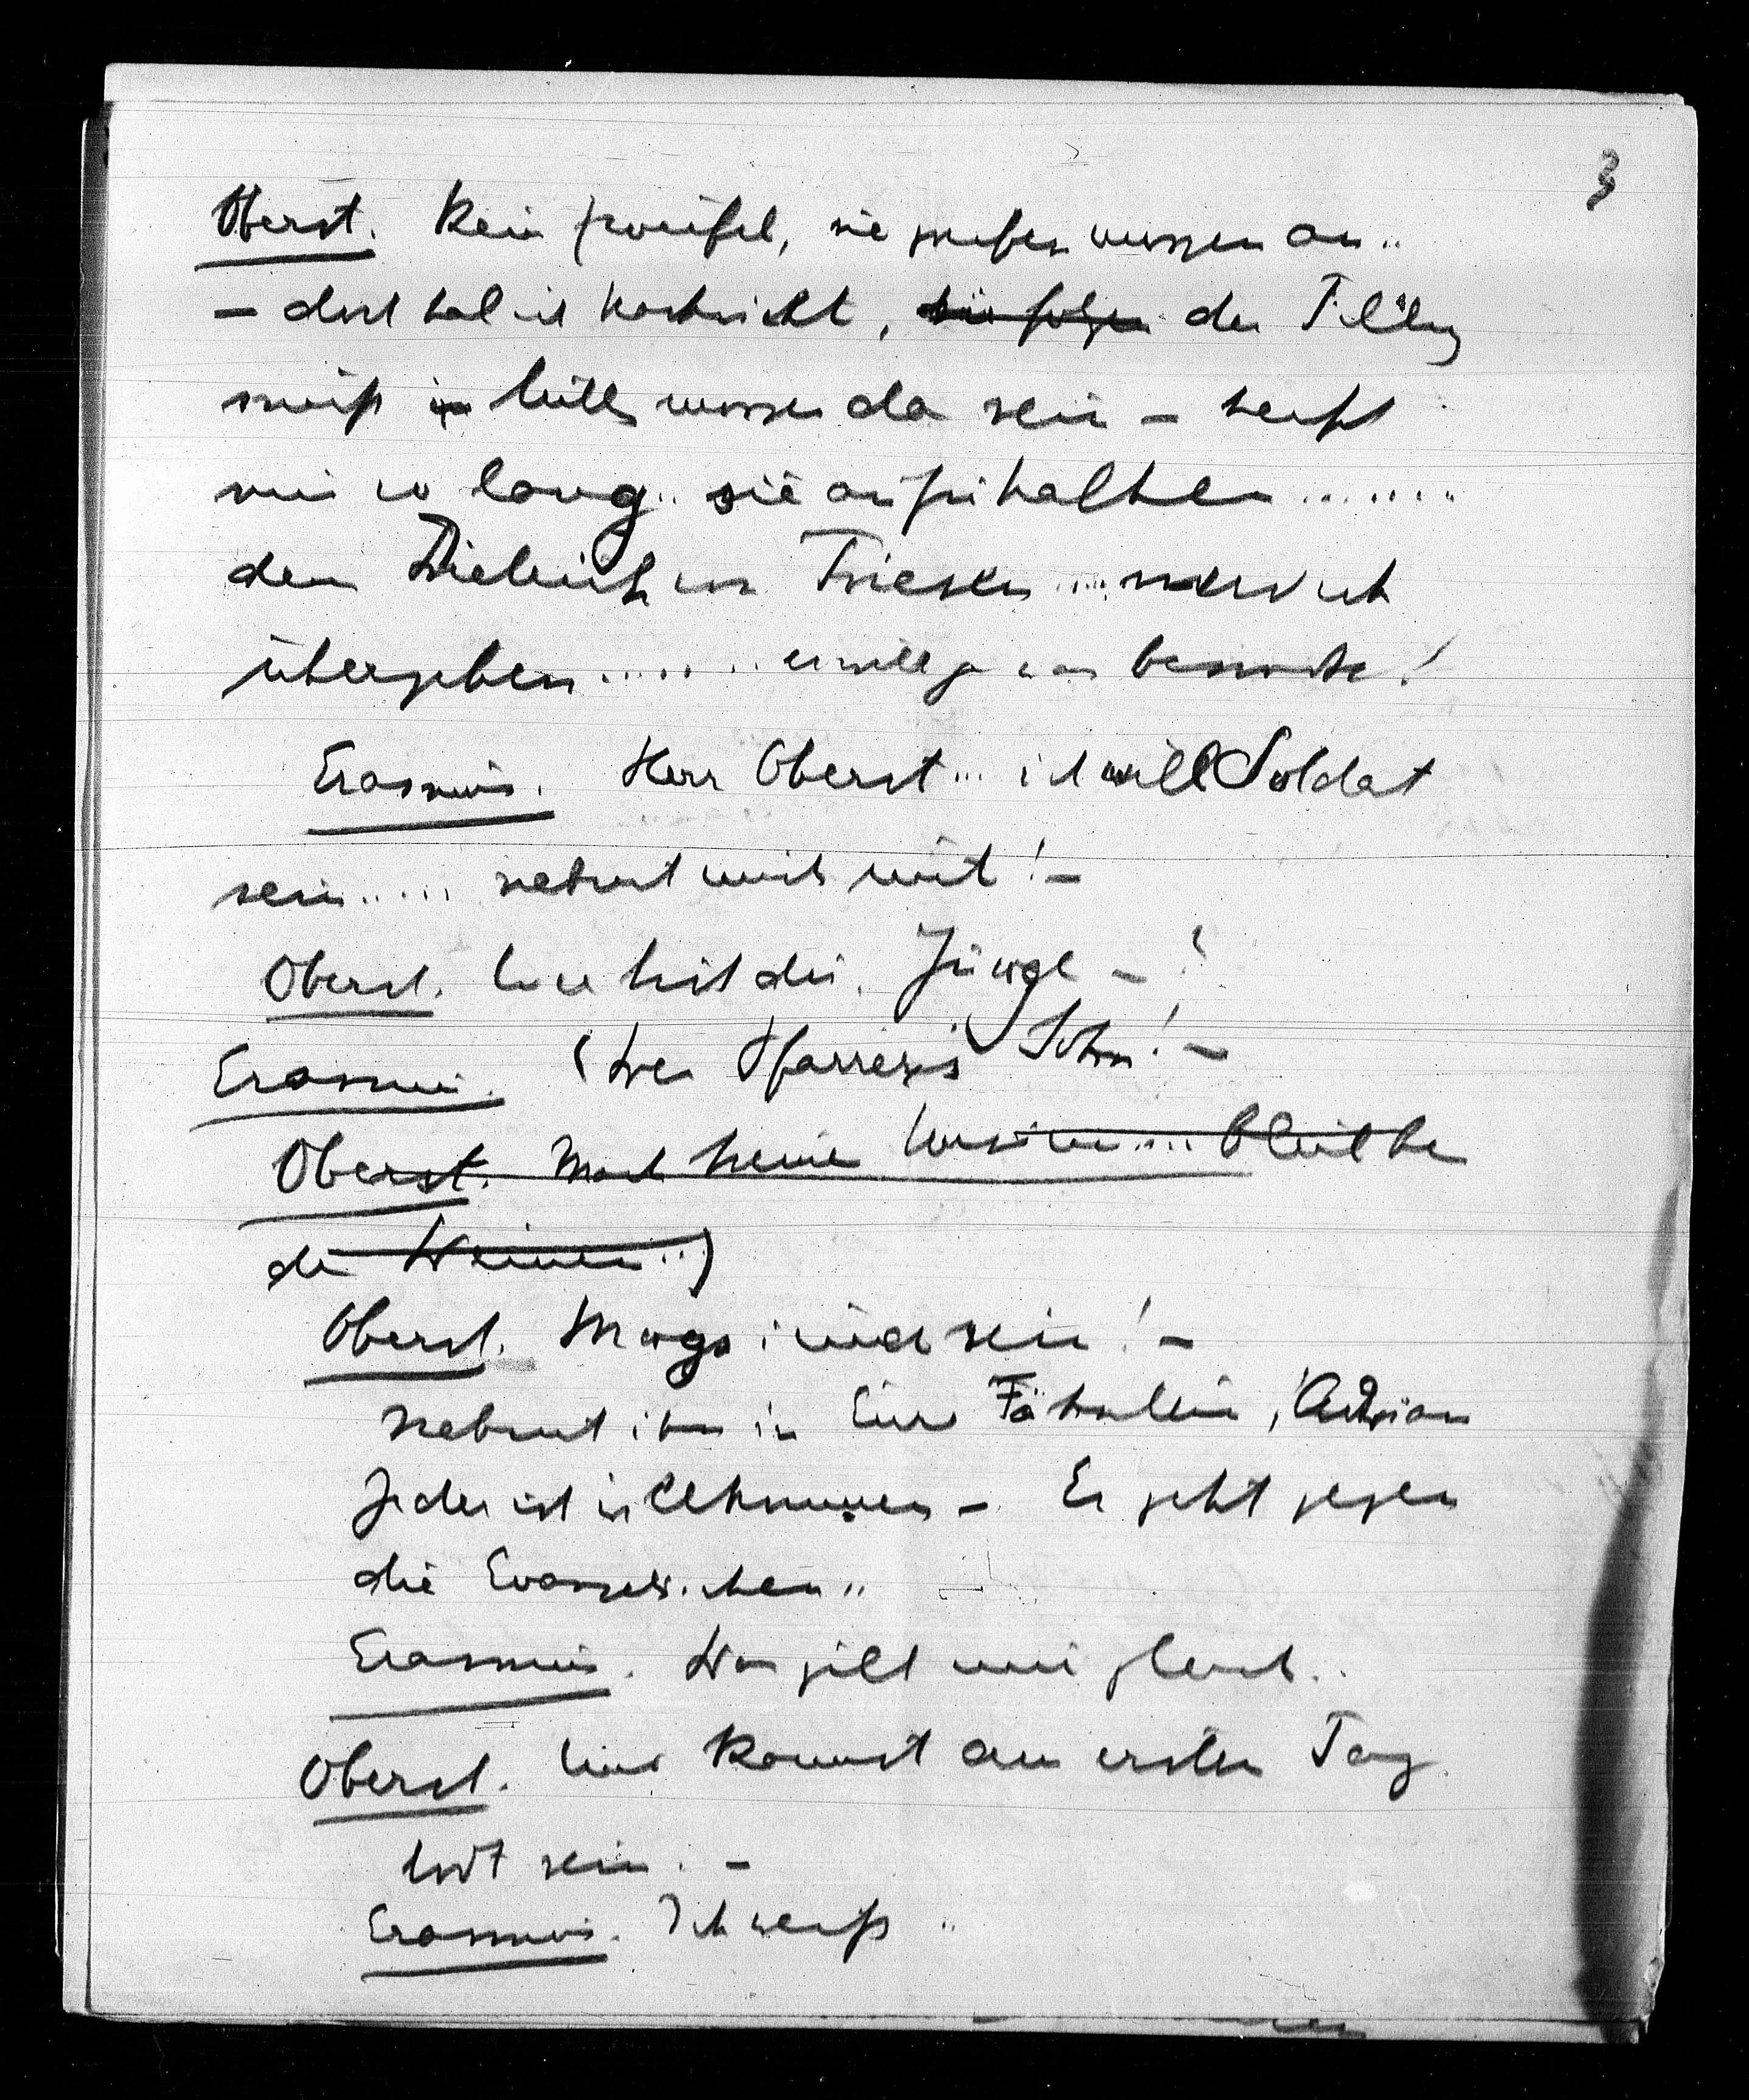 3
Oberst. Kein Zweifel, sie greifen morgen an..
– dort hab ich Nachricht, sie folgen der Tilly
muß in morgen da sein – heißt
nur so lang.. sie aufzuhalten.......
den im Friesen....
übergeben....... er will ja !
Erasmus. Herr Oberst... ich will Soldat
sein..... nehmt mich mit! –
Oberst. Wer bist du, Junge – ?
Erasmus. (Des Pfarrers Sohn! –
Oberst. Mach keine .... bleib be
der ..)
Oberst. Mags immer sein! –
Nehmt ihn in Eur Fähnlein, Adrian
Jeder ist willkommen – Es geht gegen
die Evangelischen..
Erasmus. Das gilt mir gleich..
Oberst. Und kannst am ersten Tag
todt sein. –
Erasmus. Ich weiß..